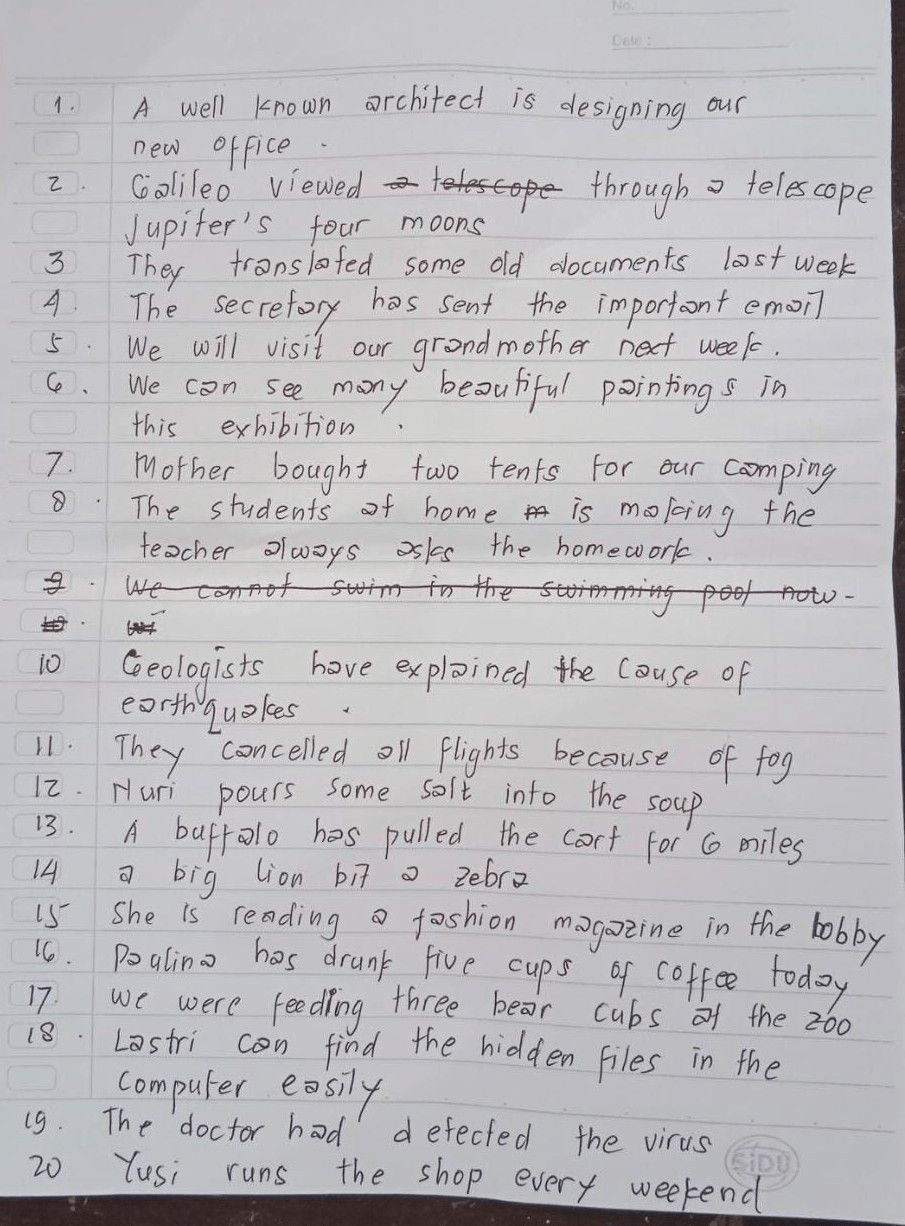 No.
Date :
1. A well known architect is designing our
new office .
2. Galileo viewed a telescope through a telescope
Jupiter's four moons
3 They translated some old documents last week
4. The secretary has sent the important email
5. We will visit our grandmother next week.
6. We can see many beautiful paintings in
this exhibition .
7. Mother bought two tents for our camping
8. The students at home m is making the
teacher always asks the homework.
9. We cannot swim in the swimming pool now-
10.
10 Geologists have explained the cause of
earthquakes .
11. They cancelled all flights because of fog
12. Nuri pours some salt into the soup
13. A buffalo has pulled the cart for 6 miles
14 a big lion bit a zebra
15 She is reading a fashion magazine in the bobby
16. Paulina has drunk five cups of coffee today
17. We were feeding three bear cubs at the zoo
18. Lastri can find the hidden files in the
computer easily
19. The doctor had detected the virus
20 Yusi runs the shop every weekend
SiDU